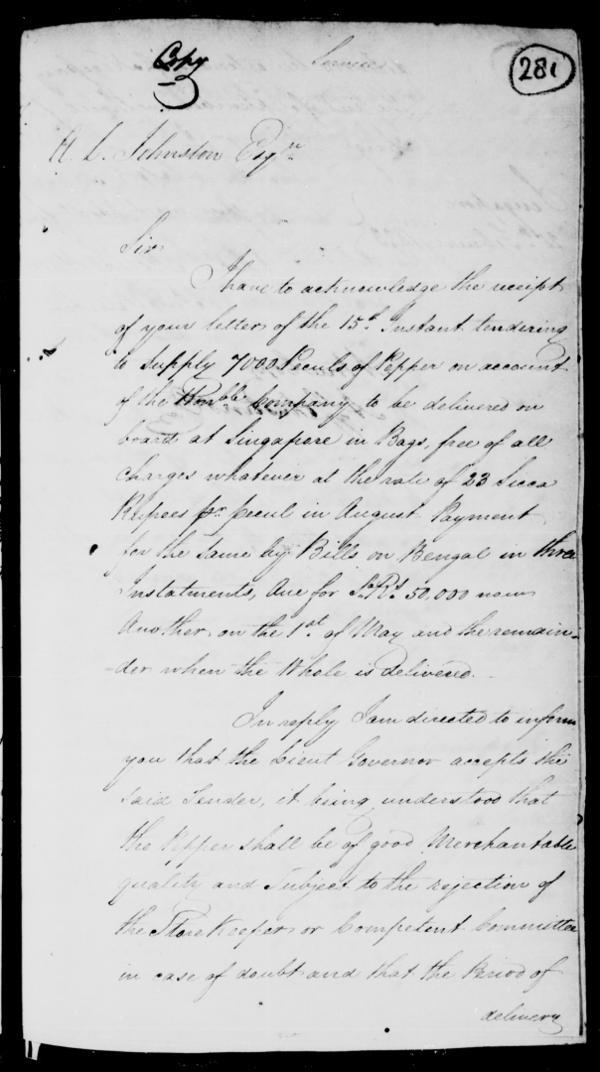 Copy
281
A. L. Johnston Esqre
Sir
I have to acknowledge the receipt
of your letter of the 15th Instant tendering
to Supply 7000 Peculs of Pepper on account
of the Honble Company to be delivered on
board at Singapore in Bags, free of all
charges whatever at the rate of 23 Sicca
Rupees pr pecul in August Payment
for the same by Bills on Bengal in three
Instalments, One for Sa. Rs. 50,000 now
Another on the 1st of May and the remain-
-der when the Whole is delivered.
In reply I am directed to inform
you that the Lieut Governor accepts the
said Tender, it being understood that
the Pepper shall be of good Merchantable
quality and Subject to the rejection of
the Store Keeper or Competent Committee
in case of doubt and that the Period of
delivery